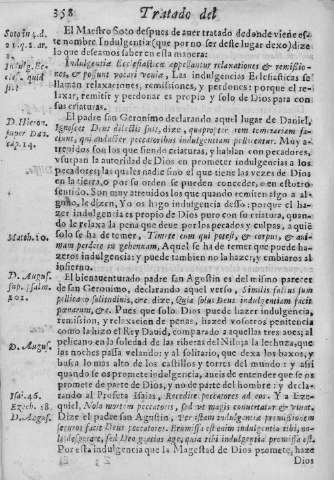 358 Tratado del
Soto in 4. d.
21. q. 1. ar.
El Maestro Soto despues de auer tratado de donde viene es-
te nombre Indulgentia (que por no ser deste lugar dexo) dize
lo que deseamos saber en esta manera:
Indulgentiæ Ecclesiasticæ appellantur relaxationes & remissio-
nes, & possunt vocari veniæ, Las indulgencias Eclesiasticas se
llaman relaxaciones, remissiones, y perdones: porque el re-
laxar, remissir y perdonar es propio y solo de Dios para con
sus criaturas.
D. Hieron.
super Dan.
cap. 14.
El padre san Geronimo declarando aquel lugar de Daniel,
Ignoscet Deus delictis suis, dize, quapropter rem temerariam fa-
ciunt, qui audacter peccatoribus indulgentiam pollicentur. Muy a-
treuidos son los que siendo criaturas, y hablan con pecadores,
vsurpan la autoridad de Dios en prometer indulgencias a los
pecadores; las quales nadie sino el que tiene las vezes de Dios
en la tierra, o por su orden se pueden conceder, o en estotro
sentido. Son muy atreuidos los que quando remiten algo a al-
guno, le dizen, Yo os hago indulgencia desso: porque el ha-
zer indulgencia es propio de Dios puro con su criatura, quan-
do le relaxa la pena que deue por los pecados y culpas, a quiē
Matth. 10.
solo se ha de temer, Timete eum qui potest, & corpus, & ani-
mam perdere in gehennam, Aquel se ha de temer que puede ha-
zeros indulgencia: y puede tambien no la hazer, y embiaros al
infierno.
D. Augus.
sup. Psalm.
101.
El bienauenturado padre san Agostin es del mismo parecer
de san Geronimo, declarando aquel verso, Similis factus sum
pellicano solitudinis, &c. dize, Quia solus Deus indulgentiam facit
pœnarum, &c. Pues que solo Dios puede hazer indulgencia,
remission, y relaxacion de penas, hazed vosotros penitencia
como la hizo el Rey Dauid, comparado a aquellas tres aues; al
pelicano en la soledad de las riberas del Nilo; a la lechuza, que
las noches passa velando: y al solitario, que dexa los baxos, y
busca lo mas alto de los castillos y torres del mundo: y assi
D. Augus.
quando se os promete indulgencia, aueis de entender que se os
promete de parte de Dios, y no de parte del hombre: y decla-
Isai. 46.
rando al Profeta Isaias, Recedite peccatores ad cor. Y a Eze-
Ezech. 18.
quiel, Nolo mortem peccatoris, sed vt magis conuertatur & viuat.
D. Augus.
Dize el padre san Agustin, Per istam indulgentiæ promissionem
securos facit Deus peccatores. Promissa est enim indulgentia tibi, no-
li desperare, sed Deo gratias age, quia tibi indulgentia promissa est.
Por esta indulgencia que la Magestad de Dios promete, haze
Dios